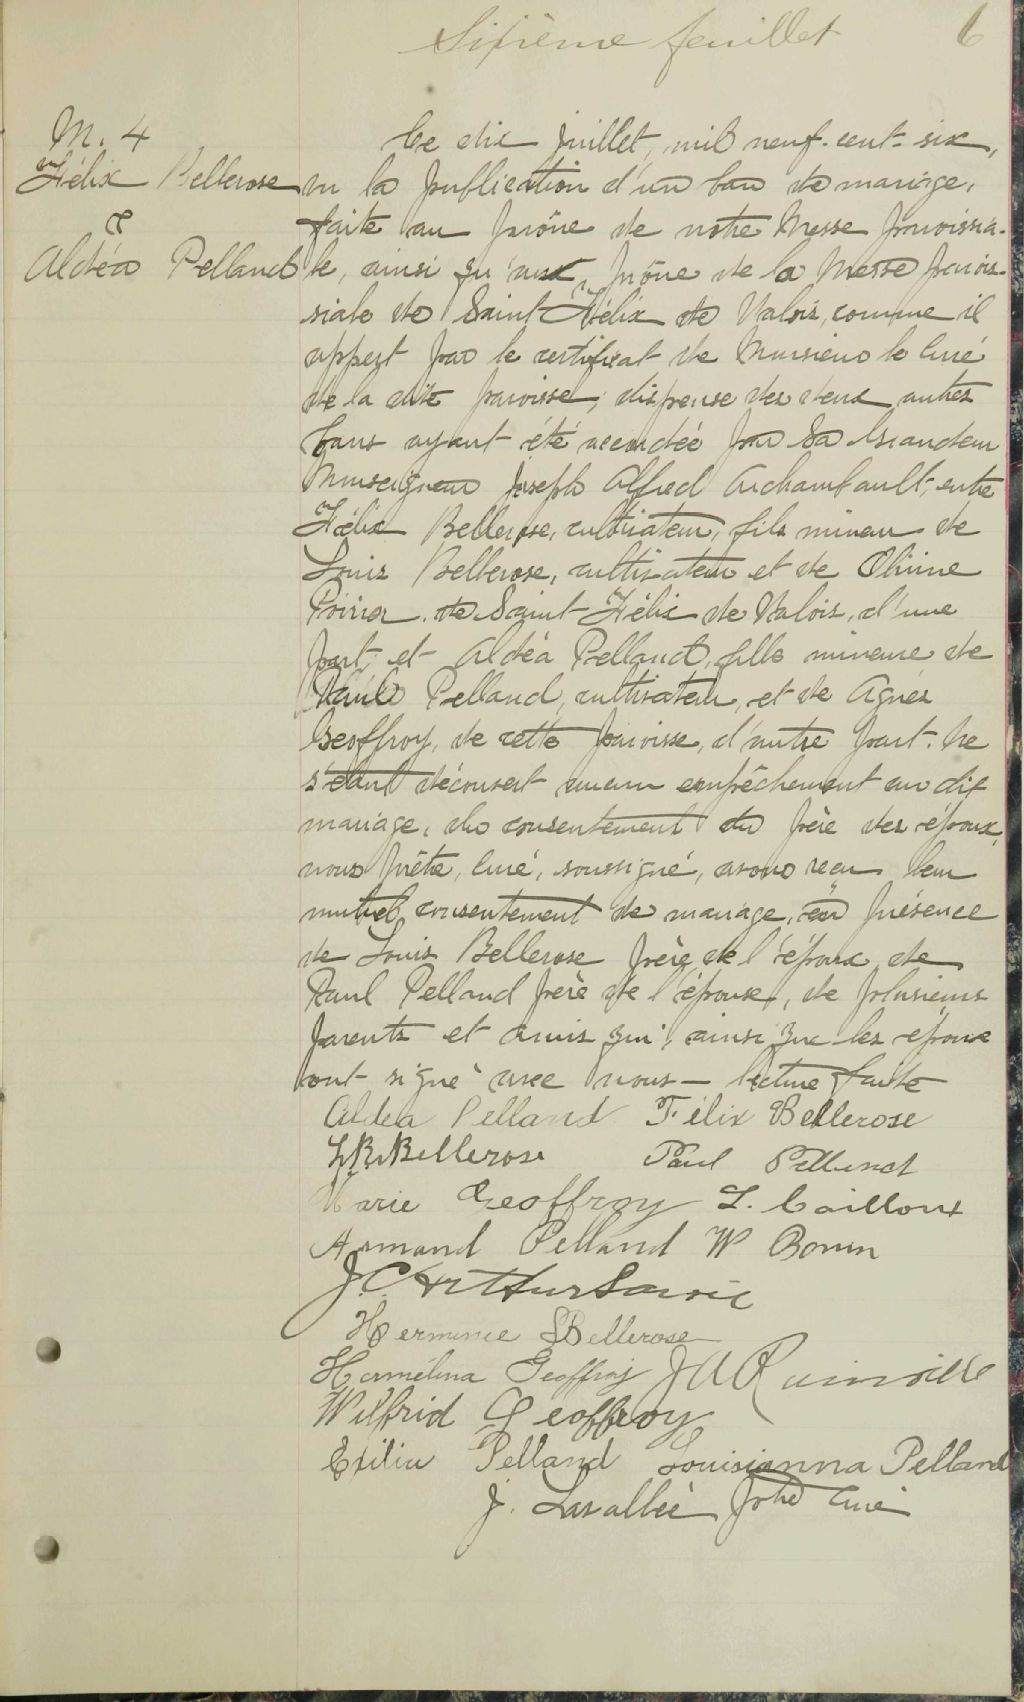 Sixième feuillet 6
M. 4
Félix Bellerose
&
Aldéa Pelland
Ce dix juillet, mil neuf-cent-six,
vu la publication d'un ban de mariage,
faite au prône de notre Messe paroissia-
le, ainsi qu'aux prône de la Messe parois-
siale de Saint Félix de Valois, comme il
appert par le certificat de Monsieur le Curé
de la dite paroisse, dispense des deux autres
bans ayant été accordée par Sa Grandeur
Monseigneur Joseph Alfred Archambault, entre
Félix Bellerose, cultivateur, fils mineur de
Louis Bellerose, cultivateur et de Olivine
Poirier, de Saint-Félix de Valois, d'une
part, et Aldéa Pelland, fille mineure de
Paul Pelland, cultivateur, et de Agnès
Geoffroy, de cette paroisse, d'autre part. Ne
s'étant découvert aucun empêchement au dit
mariage, du consentement du père des époux,
nous prêtre, Curé, soussigné, avons reçu leur
mutuel consentement de mariage, en présence
de Louis Bellerose père de l'époux, de
Paul Pelland père de l'épouse, de plusieurs
parents et amis qui, ainsi que les époux
ont signé avec nous — lecture faite
Aldea Pelland Félix Bellerose
L. Bellerose Paul Pelland
Marie Geoffroy L. Cailloux
Armand Pelland W Bonin
J. C. Arthur Savoie
Hermine Bellerose
Hermélina Geoffroy J A Rainville
Wilfrid Geoffroy
Exilia Pelland Louisianna Pelland
J. Lasallée Ptre Curé